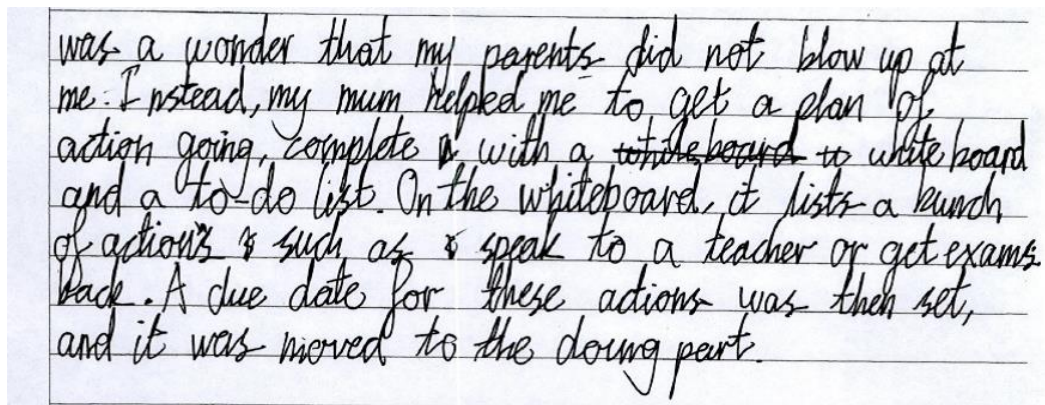 was a wonder that my parents did not blow up at
me. Instead, my mum helped me to get a plan of
action going, complete with a whiteboard to white board
and a to-do list. On the whiteboard, it lists a bunch
of actions such as speak to a teacher or get exams
back. A due date for these actions was then set,
and it was moved to the doing part.